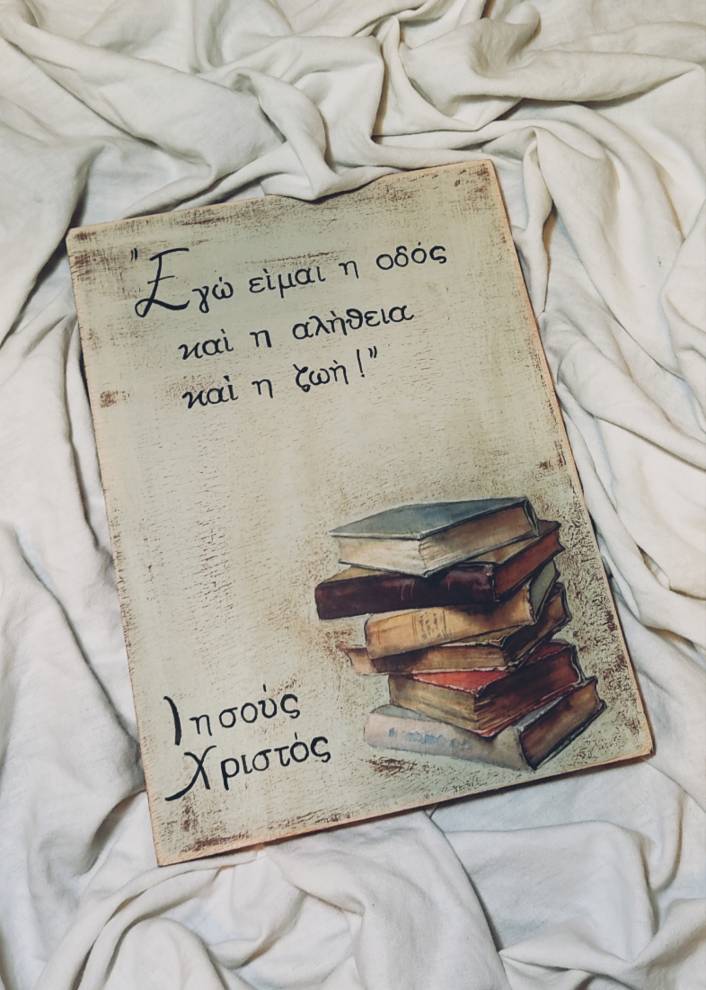 "Εγώ είμαι η οδός
καὶ η αλήθεια
καὶ η ζωὴ!"
Ιησούς
Χριστός